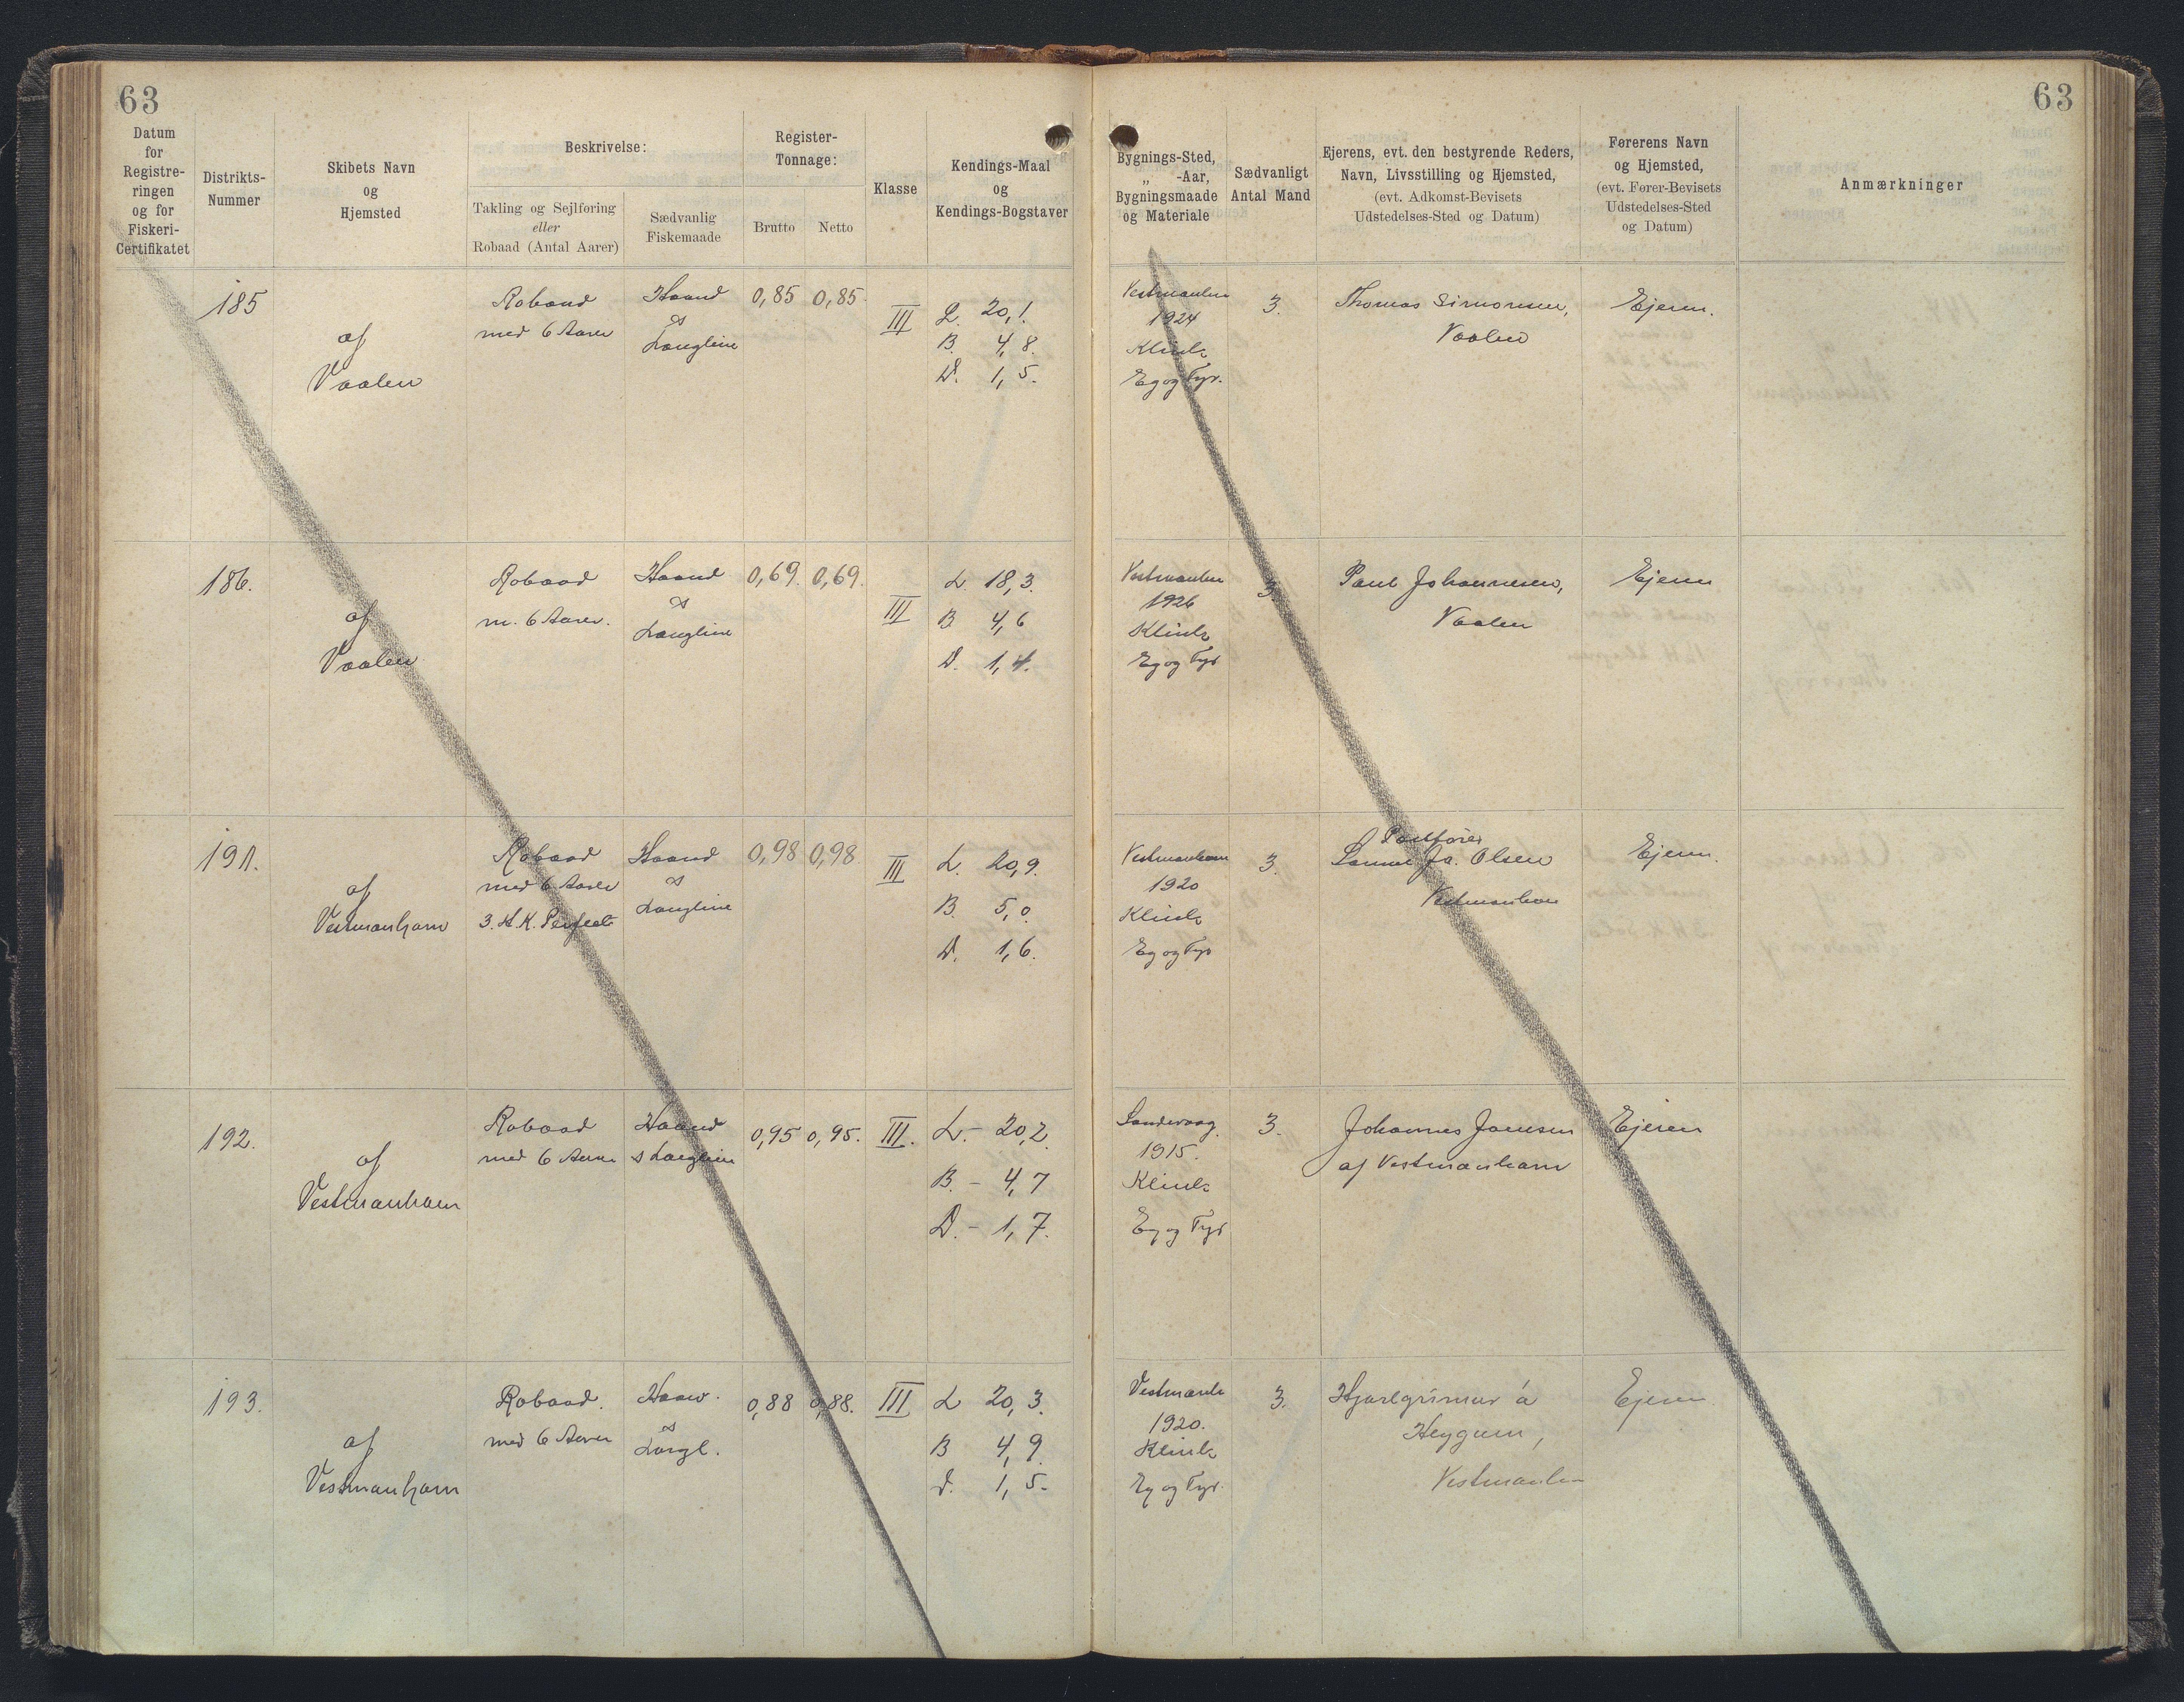 63
63
Datum
for
Registre-
ringen
og for
Fiskeri-
Certifikatet
Distrikts-
Nummer
Skibets Navn
og
Hjemsted
Beskrivelse:
Takling og Sejlføring
eller
Robaad (Antal Aarer)
Sædvanlig
Fiskemaade
Register-
Tonnage:
Brutto
Netto
Klasse
Kendings-Maal
og
Kendings-Bogstaver
Bygnings-Sted,
„ -Aar,
Bygningsmaade
og Materiale
Sædvanligt
Antal Mand
Ejerens, evt. den bestyrende Reders,
Navn, Livsstilling og Hjemsted,
(evt. Adkomst-Bevisets
Udstedelses-Sted og Datum)
Førerens Navn
og Hjemsted,
(evt. Fører-Bevisets
Udstedelses-Sted
og Datum)
Anmærkninger
185
af
Vaalen
Robaad
med 6 Aarer
Haand
&
Langline
0,85
0,85
III
L. 20,1.
B. 4,8.
D. 1,5.
1924
Klink
Eg og Fyr.
3.
Thomas Simonsen,
Vaalen
Ejeren.
186.
af
Vaalen
Robaad
m. 6 Aarer.
Haand
&
Langline
0,69.
0,69.
III
L. 18,3.
B 4,6
D. 1,4.
1926
Klink
Eg og Fyr
3.
Paul Johannesen,
Vaalen
Ejeren
191.
af
Vestmanhavn
Robaad
med 6 Aarer
3. H.K. Perfect
Haand
&
Langline
0,98
0,98
III
L. 20,9.
B. 5,0.
D. 1,6.
Vestmanhavn
1920
Klink
Eg og Fyr
3.
Postfører
Ja. Olsen
Vestmanhavn
Ejeren.
192.
af
Vestmanhavn
Robaad
med 6 Aarer
Haand
& Langline
0,95
0,95.
III.
L. - 20,2
B. - 4,7
D. - 1,7.
Sandevaag.
1915.
Klink
Eg og Fyr
3.
Johannes Joensen
af Vestmanhavn
Ejeren
193.
af
Vestmanhavn
Robaad.
med 6 Aarer
Haan.
&
Langl.
0,88
0,88.
III
L 20,3.
B 4,9.
D. 1,5.
1920.
Klink
Eg og Fyr.
3.
Hjarlgrimur á
Heygum,
Ejeren